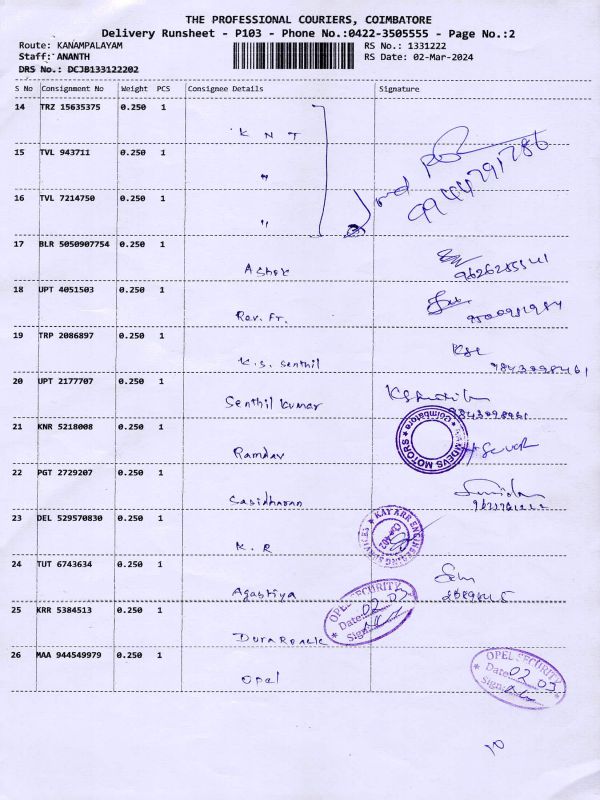 THE PROFESSIONAL COURIERS, COIMBATORE
Delivery Runsheet - P103 - Phone No.:0422-3505555 - Page No.:2
Route: KANAMPALAYAM RS No.: 1331222
Staff: ANANTH RS Date: 02-Mar-2024
DRS No.: DCJB133122202
S No Consignment No Weight PCS Consignee Details Signature
14 TRZ 15635375 0.250 1
K N T
15 TVL 943711 0.250 1
"
9944791786
16 TVL 7214750 0.250 1
"
17 BLR 5050907754 0.250 1
Ashok
18 UPT 4051503 0.250 1
Rev. Fr.
19 TRP 2086897 0.250 1
K.S. Senthil
9843098461
20 UPT 2177707 0.250 1
Senthil Kumar
21 KNR 5218008 0.250 1
Ramdev
RAMDEVS MOTORS
Coimbatore
22 PGT 2729207 0.250 1
Sasidharan
23 DEL 529570830 0.250 1
K. R
KAY ARR ENGINEERING SERVICES
24 TUT 6743634 0.250 1
Agastiya
25 KRR 5384513 0.250 1
OPEL SECURITY
Date: 02 03
Sign:
26 MAA 944549979 0.250 1
Opel
OPEL SECURITY
Date: 02 03
Sign:
10